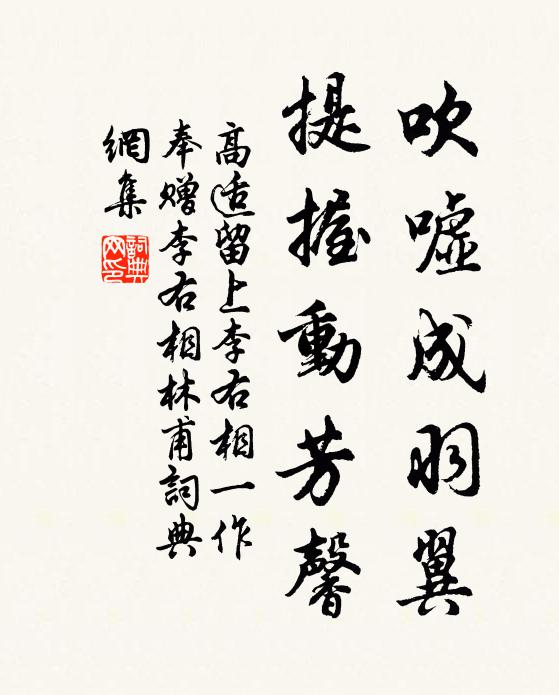 吹嘘成羽翼
提握動芳馨
高适留上李右相一作
奉贈李右相林甫詞典
網集
詞典
网印